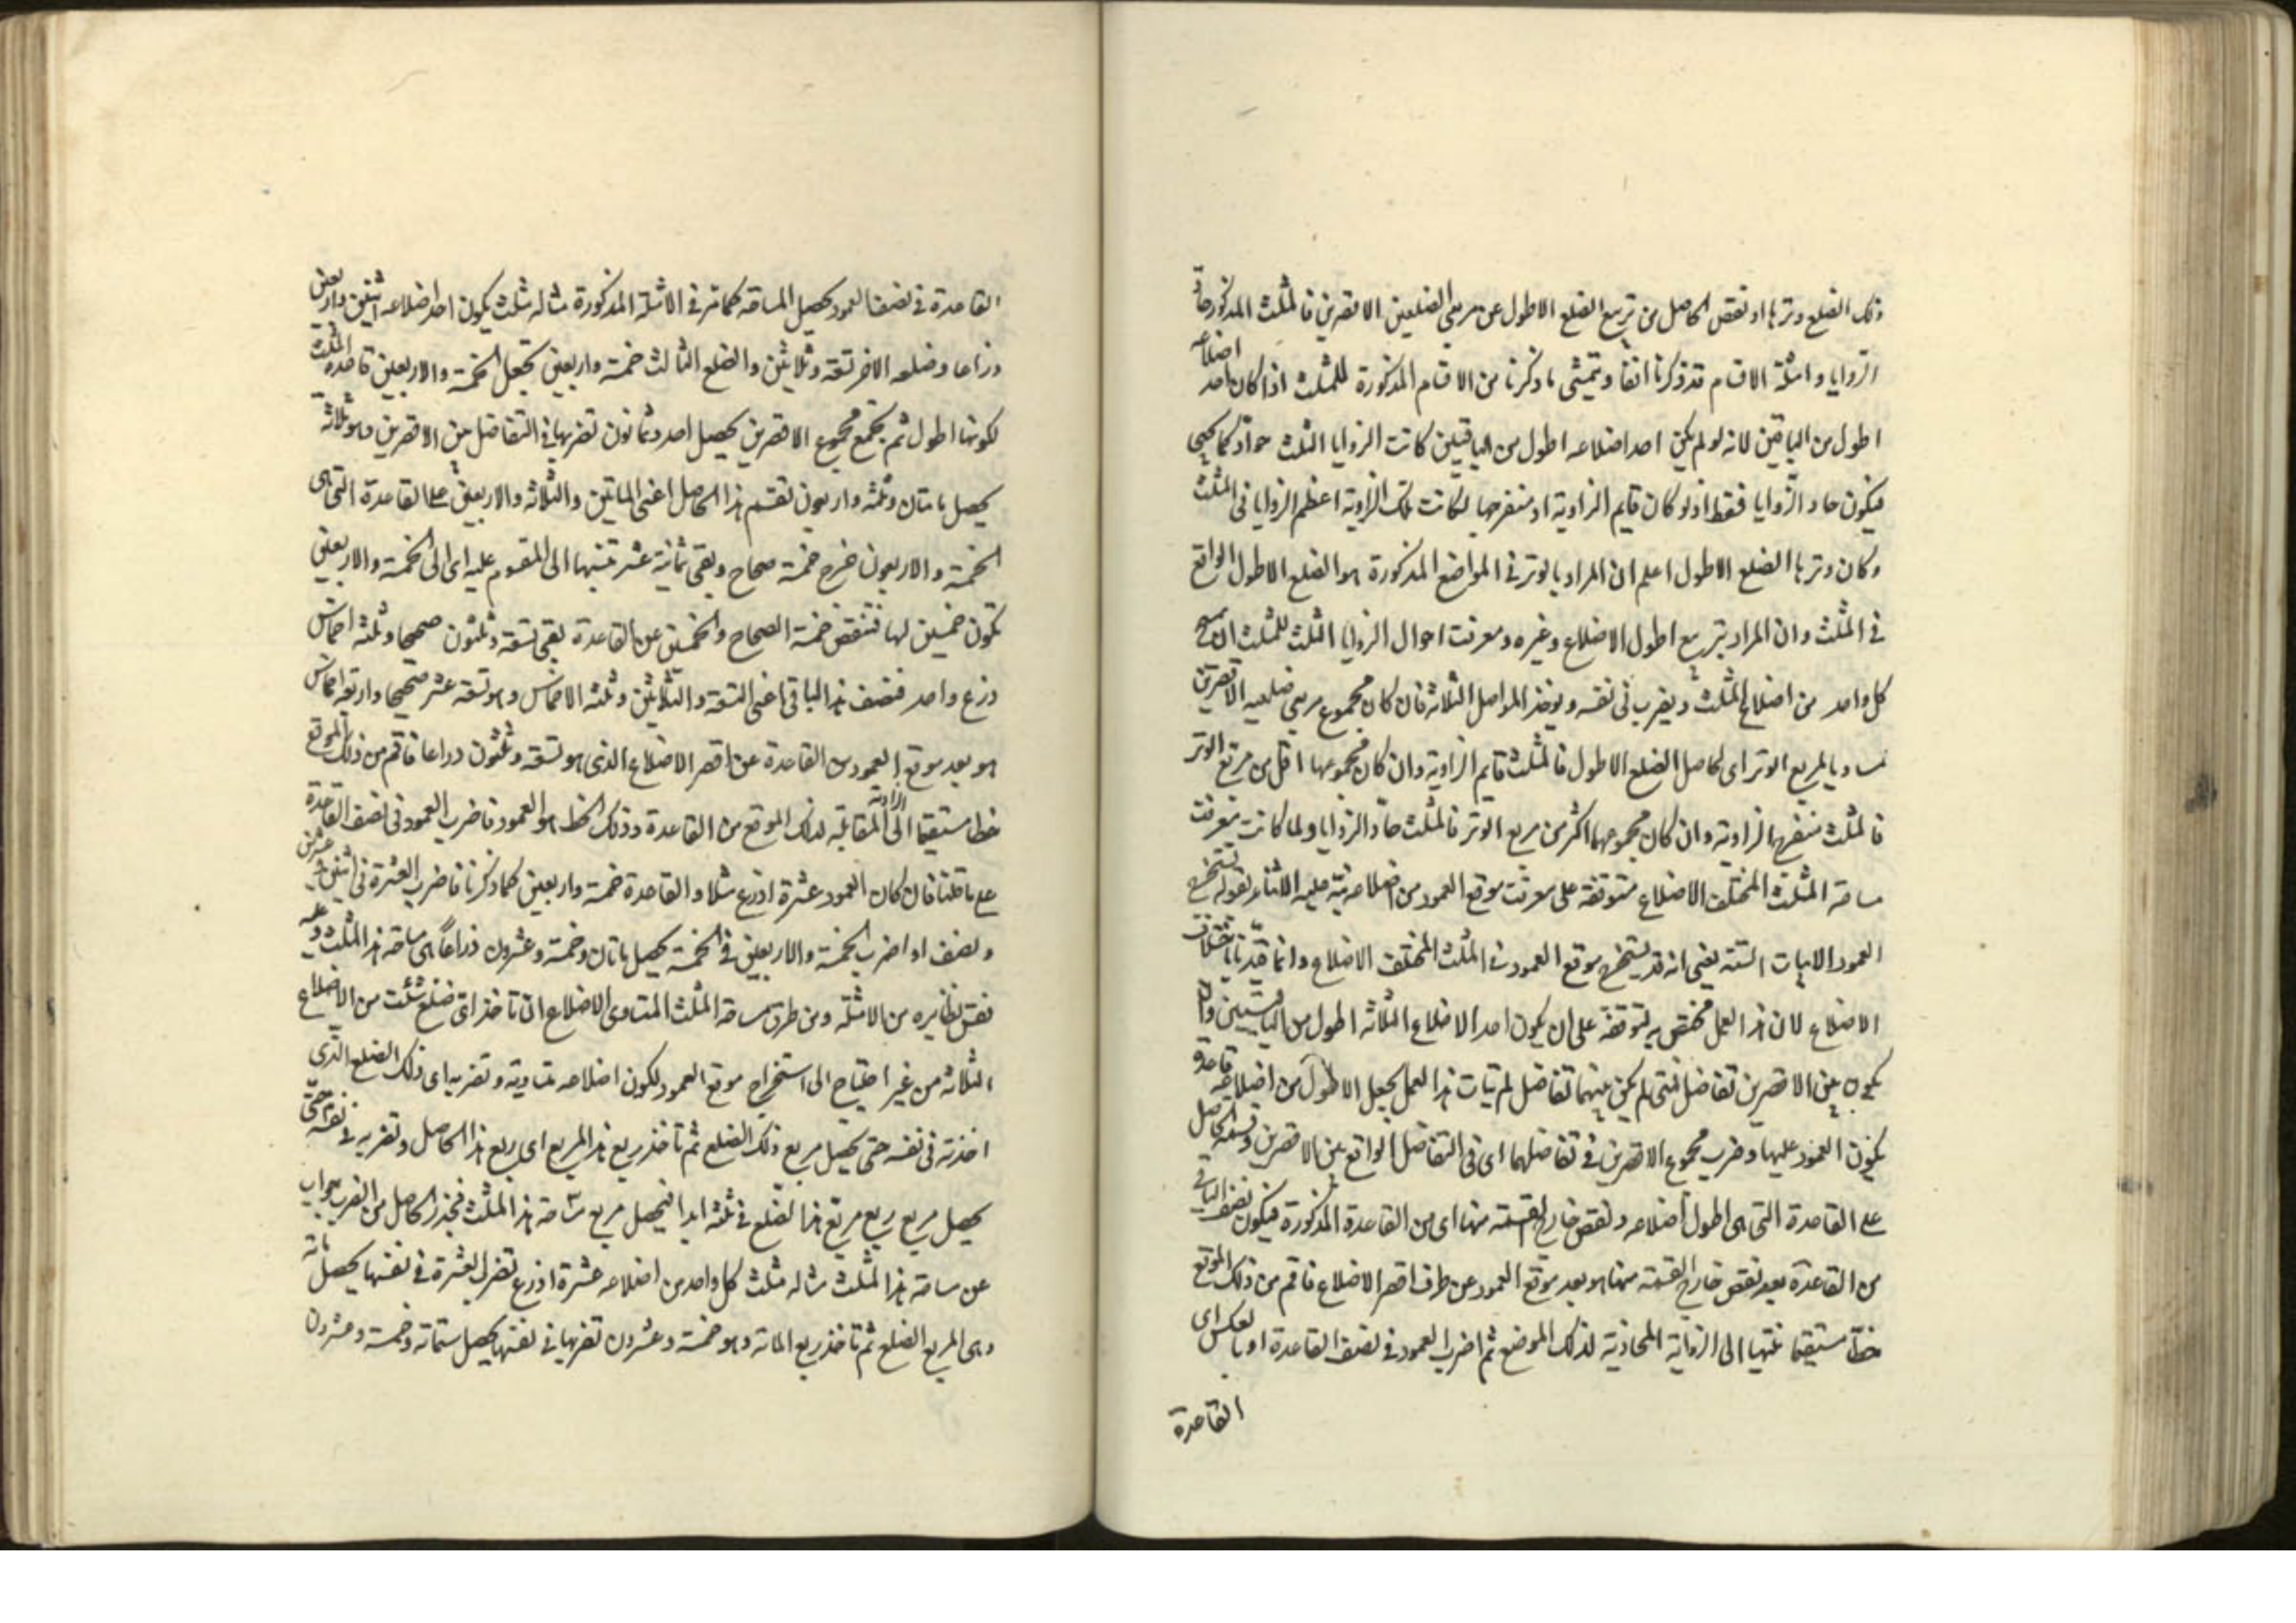 ذلك الضلع وترها او نقص الحاصل من تربيع الضلع الاطول عن مربعى الضلعين الاقصرين فالمثلث المذكور حاد
الزوايا وامثلة الاقسام قد ذكرنا انفا ويتمشى ما ذكرنا من الاقسام المذكورة للمثلث اذا كان احد اضلاعه
اطول من الباقيين لانه لو لم يكن احد اضلاعه اطول من الباقيين كانت الزوايا الثلث حواد كما يجئ
فيكون حاد الزوايا فقط اذ لو كان قايم الزاوية او منفرجها لكانت تلك الزاوية اعظم الزوايا فى المثلث
وكان وترها الضلع الاطول اعلم ان المراد بالوتر فى المواضع المذكورة هو الضلع الاطول الواقع
فى المثلث وان المراد بتربيع اطول الاضلاع وغيره ومعرفت احوال الزوايا الثلث للمثلث ان يمسح
كل واحد من اضلاع المثلث ويضرب فى نفسه ويوخذ الحواصل الثلاثة فان كان مجموع مربعى ضلعيه الاقصرين
مساويا لمربع الوتر اى لحاصل الضلع الاطول فالمثلث قايم الزاوية وان كان مجموعهما اقل من مربع الوتر
فالمثلث منفرج الزاوية وان كان مجموعهما اكثر من مربع الوتر فالمثلث حاد الزوايا ولما كانت معرفت
مساحة المثلث المختلف الاضلاع متوقفة على معرفت موقع العمود من اضلاعه نبه عليه الاثناء بقوله تستخرج
العمود الابيات الستة يعنى انه قد يستخرج موقع العمود فى المثلث المختلف الاضلاع وانما قيدنا باختلاف
الاضلاع لان هذا العمل مختص به لتوقفه على ان يكون احد الاضلاع الثلاثة اطول من الباقيين وان
يكون بين الاقصرين تفاضل فمتى لم يكن بينهما تفاضل لم يتات هذا العمل يجعل الاطول من اضلاعه قاعدة
يكون العمود عليها وضرب مجموع الاقصرين فى تفاضلهما اى فى التفاضل الواقع بين الاقصرين وقسمه الحاصل
على القاعدة التى هى اطول اضلاعه ونقص خارج القسمة منها اى من القاعدة المذكورة فيكون نصف الباقى
من القاعدة بعد نقص خارج القسمة منها هو بعد موقع العمود عن طرف اقصر الاضلاع فاقم من ذلك الموقع
خطا مستقيما منتهيا الى الزاوية المحاذية لذلك الموضع ثم اضرب العمود فى نصف القاعدة او بالعكس اى
القاعدة
القاعدة فى نصف العمود يحصل المساحة كما مر فى الامثلة المذكورة مثاله مثلث يكون احد اضلاعه اثنين واربعين
ذراعا وضلعه الاخر تسعة وثلاثين والضلع الثالث خمسة واربعين تجعل الخمسة والاربعين قاعدة المثلث
لكونها اطول ثم يجمع مجموع الاقصرين يحصل احد وثمانون تضربها فى التفاضل بين الاقصرين وهو ثلاثة
يحصل ماتان وثلثه واربعون تقسم هذا الحاصل اعنى الماتين والثلاثة والاربعين على القاعدة التى هى
الخمسة والاربعون خرج خمسة صحاح وبقى ثمانية عشر تنسبها الى المقسوم عليه اى الى الخمسة والاربعين
تكون خمسين لها فتنقص خمسة الصحاح والخمسين عن القاعدة بقى تسعة وثلثون صحيحا وثلثه اخماس
ذرع واحد فنصف هذا الباقى اعنى التسعة والثلاثين وثلثه الاخماس وهو تسعة عشر صحيحا واربعة اخماس
هو بعد موقع العمود من القاعدة عن اقصر الاضلاع الذى هو تسعة وثلثون ذراعا فاقم من ذلك الموقع
خطا مستقيما الى الزاوية المقابلة لذلك الموقع من القاعدة وذلك الخط هو العمود فاضرب العمود فى نصف القاعدة
على ما قلنا فان كان العمود عشرة اذرع مثلا والقاعدة خمسة واربعين كما ذكرنا فاضرب العشرة فى اثنين وعشرين
ونصف او اضرب الخمسة والاربعين فى الخمسة يحصل ماتان وخمسة وعشرون ذراعا هى مساحة هذا المثلث وعليه
فقس نظايره من الامثلة ومن طرق مساحة المثلث المتساوى الاضلاع ان تاخذ اى ضلع شئت من الاضلاع
الثلاثة من غير احتياج الى استخراج موقع العمود لكون اضلاعه متساوية وتضربه اى ذلك الضلع الذى
اخذته فى نفسه حتى يحصل مربع ذلك الضلع ثم تاخذ ربع هذا المربع اى ربع هذا الحاصل وتضربه فى نفسه حتى
يحصل مربع ربع مربع هذا الضلع فى ثلثه ابدا فيحصل مربع مساحة هذا المثلث فجذر الحاصل من الضرب جواب
عن مساحة هذا المثلث مثاله مثلث كل واحد من اضلاعه عشرة اذرع تضرب العشرة فى نفسها يحصل مائة
وهى المربع الضلع ثم تاخذ ربع المائة وهو خمسة وعشرون تضربها فى نفسها يحصل ستمائة وخمسة وعشرون